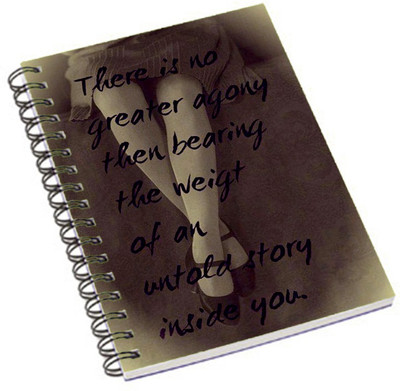 There is no
greater agony
then bearing
the weigt
of an
untold story
inside you.